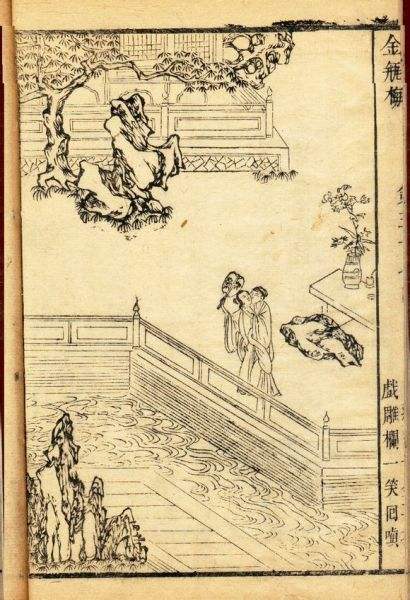 金瓶梅
戲雕欄一笑囘嗔